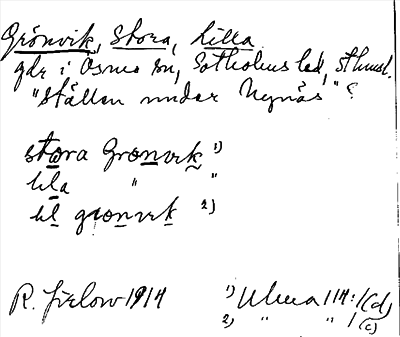 Grönvik, Stora, Lilla
gdr i Ösmo sn, Sotholms hd, Sthmsl.
"Ställen under Nynäs"
stora Gronvek 1)
lila " "
lil gronvek 2)
R. Jirlow 1914 1) Ulma 114:1(d)
2) " " 1(c)